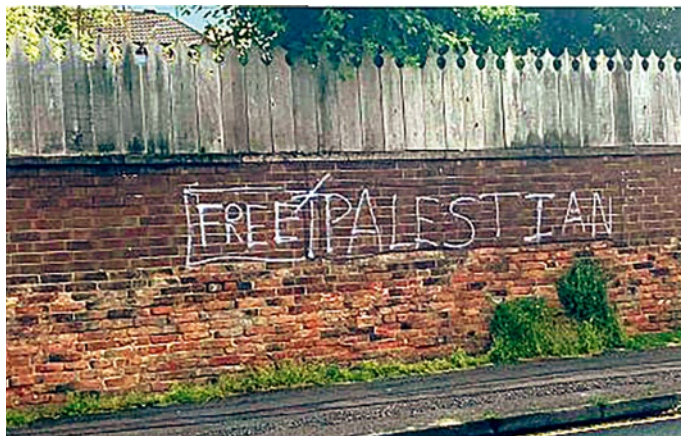 FREE PALESTIAN